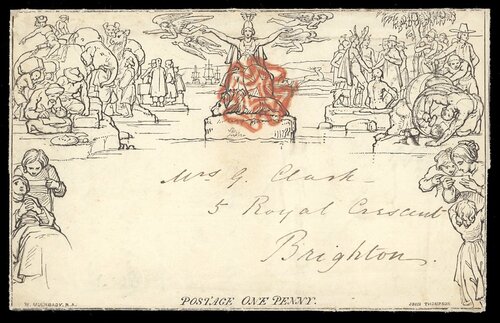 Mrs G. Clark
5 Royal Crescent
Brighton.
W. MULREADY, R.A.
POSTAGE ONE PENNY.
JOHN THOMPSON